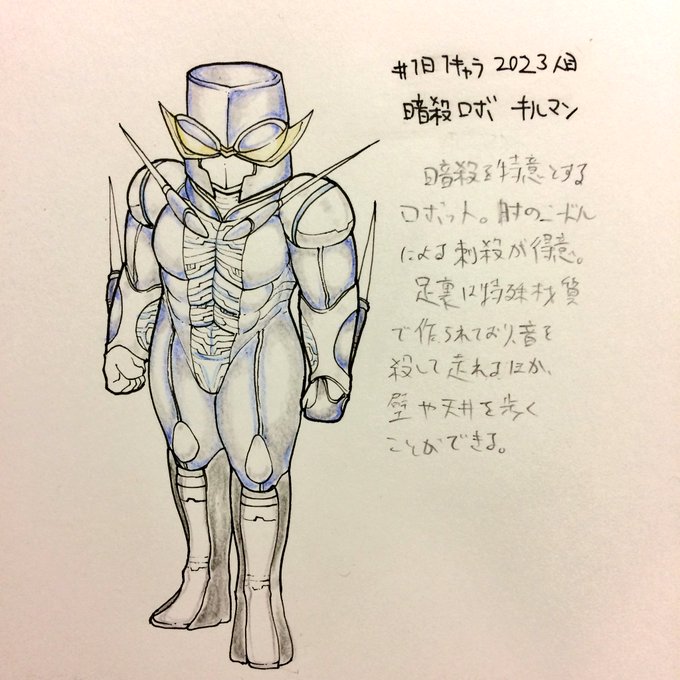 #1日1キャラ 2023人目
暗殺ロボ キルマン
暗殺を特意とする
ロボット。肘のニードル
による刺殺が得意。
足裏は特殊材質
で作られており、音を
殺して走れるほか、
壁や天井を歩く
ことができる。